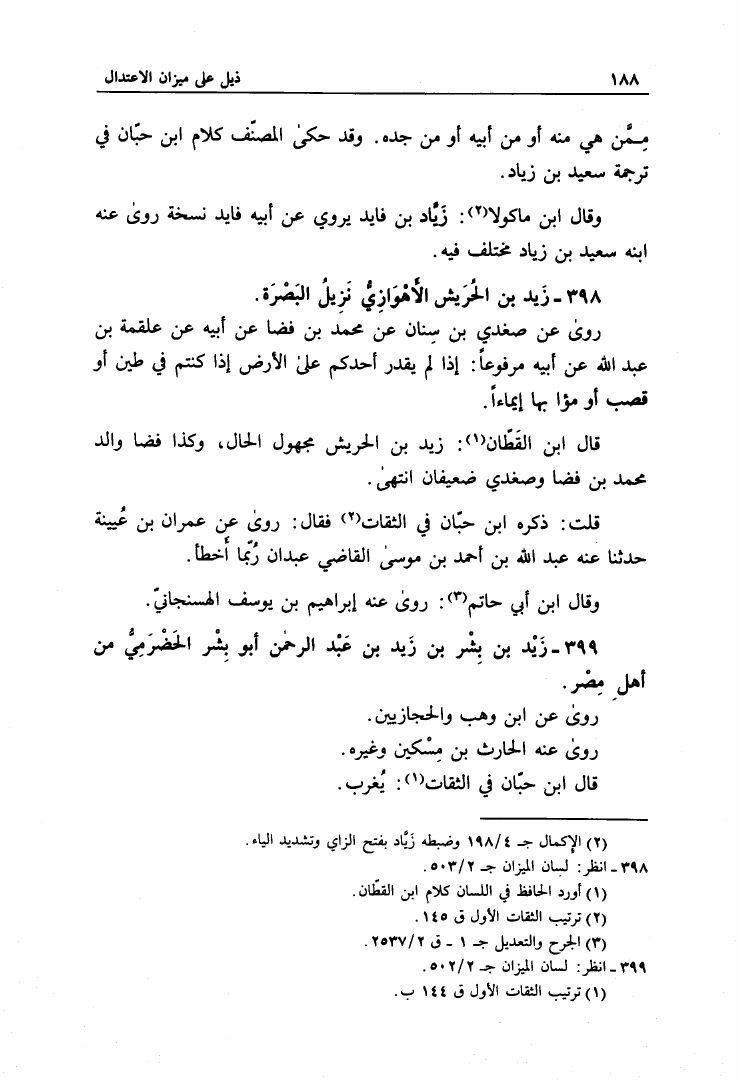 ١٨٨ ذيل على ميزان الاعتدال
مِمَّن هي منه أو من أبيه أو من جده. وقد حكىٰ المصنّف كلام ابن حبّان في
ترجمة سعيد بن زياد.
وقال ابن ماكولا(٢): زَيَّاد بن فايد يروي عن أبيه فايد نسخة روىٰ عنه
ابنه سعيد بن زياد مختلف فيه.
٣٩٨ - زَيد بن الحُرَيش الأَهْوَازِيُّ نَزِيلُ البَصْرَة.
روىٰ عن صغدي بن سِنان عن محمد بن فضا عن أبيه عن علقمة بن
عبد الله عن أبيه مرفوعاً: إذا لم يقدر أحدكم علىٰ الأرض إذا كنتم في طين أو
قصب أو مؤا بها إيماءاً.
قال ابن القَطّان(١): زيد بن الحريش مجهول الحال، وكذا فضا والد
محمد بن فضا وصغدي ضعيفان انتهىٰ.
قلت: ذكره ابن حبّان في الثقات(٢) فقال: روىٰ عن عمران بن عُيينة
حدثنا عنه عبد الله بن أحمد بن موسىٰ القاضي عبدان رُبّما أَخطأ.
وقال ابن أبي حاتم(٣): روىٰ عنه إبراهيم بن يوسف الهسنجانيّ.
٣٩٩ - زَيْد بن بِشْر بن زَيد بن عَبْد الرحمٰن أبو بِشْر الحَضْرَمِيُّ من
أهلِ مِصْر.
روىٰ عن ابن وهب والحجازيين.
روىٰ عنه الحارث بن مِسْكين وغيره.
قال ابن حبّان في الثقات(١): يُغرب.
(٢) الإكمال جـ ١٩٨/٤ وضبطه زَيَّاد بفتح الزاي وتشديد الياء.
٣٩٨ - انظر: لسان الميزان جـ ٥٠٣/٢.
(١) أورد الحافظ في اللسان كلام ابن القطّان.
(٢) ترتيب الثقات الأول ق ١٤٥.
(٣) الجرح والتعديل جـ ١ - ق ٢٥٣٧/٢.
٣٩٩ - انظر: لسان الميزان جـ ٥٠٢/٢.
(١) ترتيب الثقات الأول ق ١٤٤ ب.